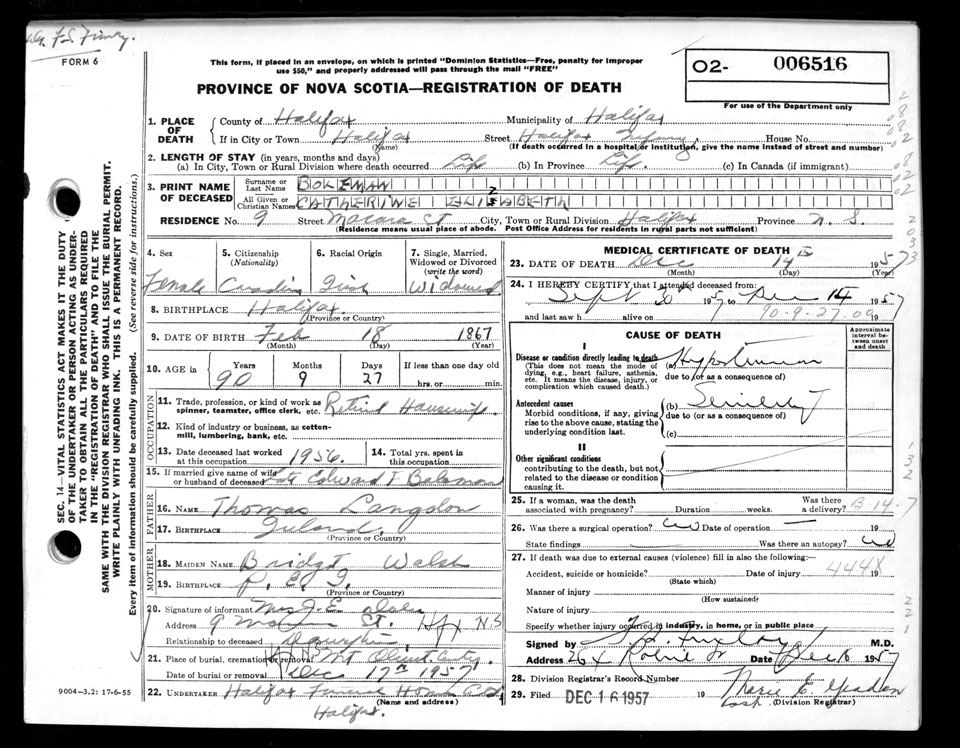 FORM 6
This form, if placed in an envelope, on which is printed "Dominion Statistics—Free, penalty for improper
use $50," and properly addressed will pass through the mail "FREE"
O2- 006516
For use of the Department only
PROVINCE OF NOVA SCOTIA—REGISTRATION OF DEATH
1. PLACE OF DEATH
County of Halifax Municipality of Halifax
If in City or Town Halifax Street Halifax Infirmary House No.
(Name) (If death occurred in a hospital or institution, give the name instead of street and number)
2. LENGTH OF STAY (in years, months and days)
(a) In City, Town or Rural Division where death occurred Life (b) In Province Life. (c) In Canada (if immigrant)
3. PRINT NAME OF DECEASED
Surname or Last Name
All Given or Christian Names CATHERINE ELIZABETH
RESIDENCE No. 9 Street Macara St City, Town or Rural Division Halifax Province N. S.
(Residence means usual place of abode. Post Office Address for residents in rural parts not sufficient)
4. Sex Female
5. Citizenship (Nationality) Canadian
6. Racial Origin Irish
7. Single, Married, Widowed or Divorced (write the word) Widowed
8. BIRTHPLACE Halifax
(Province or Country)
9. DATE OF BIRTH Feb 18 1867
(Month) (Day) (Year)
10. AGE in Years 90 Months 9 Days 27 If less than one day old hrs. or min.
OCCUPATION
11. Trade, profession, or kind of work as spinner, teamster, office clerk, etc. Retired Housewife
12. Kind of industry or business, as cotton-mill, lumbering, bank, etc.
13. Date deceased last worked at this occupation 1956.
14. Total yrs. spent in this occupation
15. If married give name of wife or husband of deceased Late Edward
FATHER
16. NAME Thomas Langdon
17. BIRTHPLACE Ireland
(Province or Country)
MOTHER
18. MAIDEN NAME Bridget Walsh
19. BIRTHPLACE P. E. I.
(Province or Country)
20. Signature of informant Mrs J. E.
Address 9 St. Hfx N.S
Relationship to deceased Daughter
21. Place of burial, cremation or removal Mt Olivet
Date of burial or removal Dec 17th 1957
22. UNDERTAKER Halifax Funeral Home
(Name and address)
Halifax.
9004-3.2: 17-6-55
MEDICAL CERTIFICATE OF DEATH
23. DATE OF DEATH Dec 14 1957
(Month) (Day) (Year)
24. I HEREBY CERTIFY that I attended deceased from:
Sept 30th 57 to Dec 14 1957
and last saw h alive on 90-9-27-09
CAUSE OF DEATH
Approximate interval between onset and death
I
Disease or condition directly leading to death
(This does not mean the mode of dying, e.g., heart failure, asthenia, etc. It means the disease, injury, or complication which caused death.)
(a)
due to (or as a consequence of)
Antecedent causes
Morbid conditions, if any, giving rise to the above cause, stating the underlying condition last.
(b) Senility
due to (or as a consequence of)
(c)
II
Other significant conditions
contributing to the death, but not related to the disease or condition causing it.
25. If a woman, was the death associated with pregnancy? Duration weeks. Was there a delivery? B-14-7
26. Was there a surgical operation? Date of operation — 19
State findings Was there an autopsy?
27. If death was due to external causes (violence) fill in also the following:—
Accident, suicide or homicide? Date of injury 19
4448
(State which)
Manner of injury
(How sustained)
Nature of injury
Specify whether injury occurred in industry, in home, or in public place
Signed by M.D.
Address Robie St Date Dec 16 1957
28. Division Registrar's Record Number
29. Filed DEC 16 1957 19 Marie E.
(Division Registrar)
SEC. 14—VITAL STATISTICS ACT MAKES IT THE DUTY
OF THE UNDERTAKER OR PERSON ACTING AS UNDER-
TAKER TO OBTAIN ALL THE PARTICULARS REQUIRED
IN THE "REGISTRATION OF DEATH" AND TO FILE THE
SAME WITH THE DIVISION REGISTRAR WHO SHALL ISSUE THE BURIAL PERMIT.
WRITE PLAINLY WITH UNFADING INK. THIS IS A PERMANENT RECORD.
Every item of information should be carefully supplied. (See reverse side for instructions.)